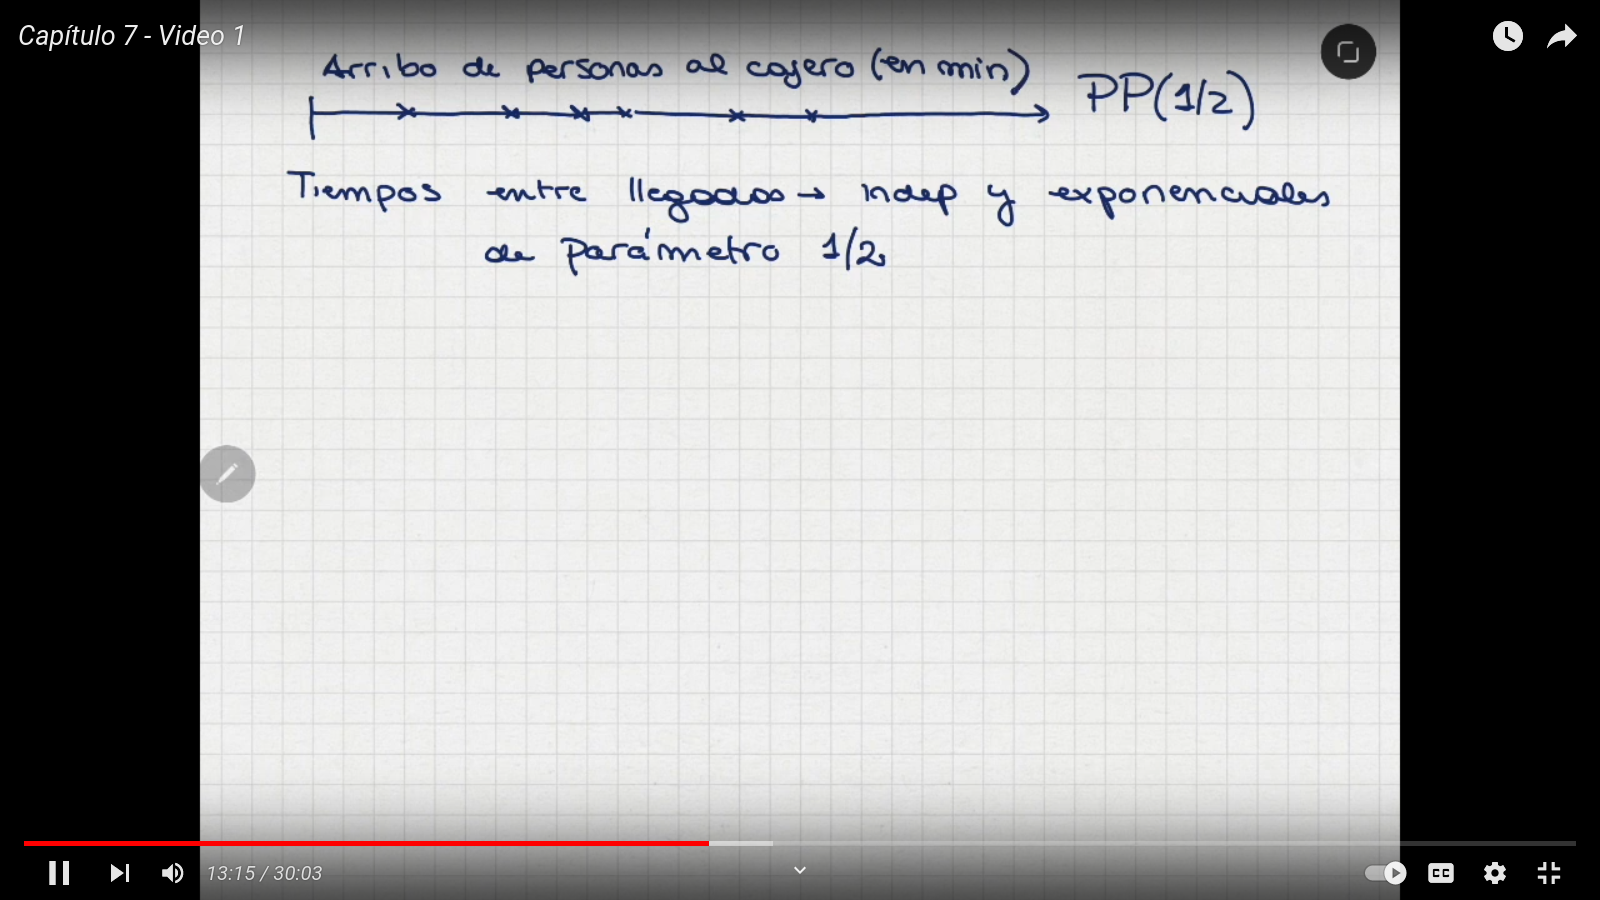 Capítulo 7 - Video 1
Arribo de personas al cajero (en min)
PP(1/2)
Tiempos entre llegadas → indep y exponenciales
de parámetro 1/2.
13:15 / 30:03
CC